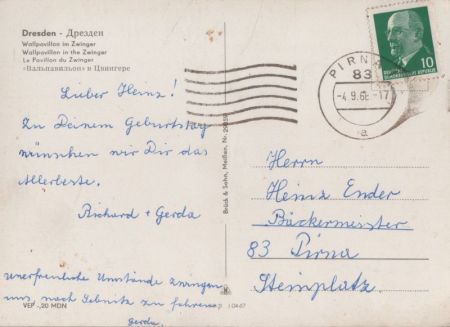 Dresden - Дрезден
Wallpavillon im Zwinger
Wallpavillon in the Zwinger
Le Pavillon du Zwinger
«Вальпавильон» в Цвингере
Lieber Heinz!
Zu Deinem Geburtstag
wünschen wir Dir das
Allerbeste.
Richard + Gerda
unerfreuliche Umstände zwingen
uns, nach Sebnitz zu fahren
Gerda.
VEP -,20 MDN
Brück & Sohn, Meißen, Nr.
PIRNA
83
-4.9.68-17
a
10
DEUTSCHE
DEMOKRATISCHE REPUBLIK
Herrn
Heinz Ender
Bäckermeister
83 Pirna
Steinplatz.